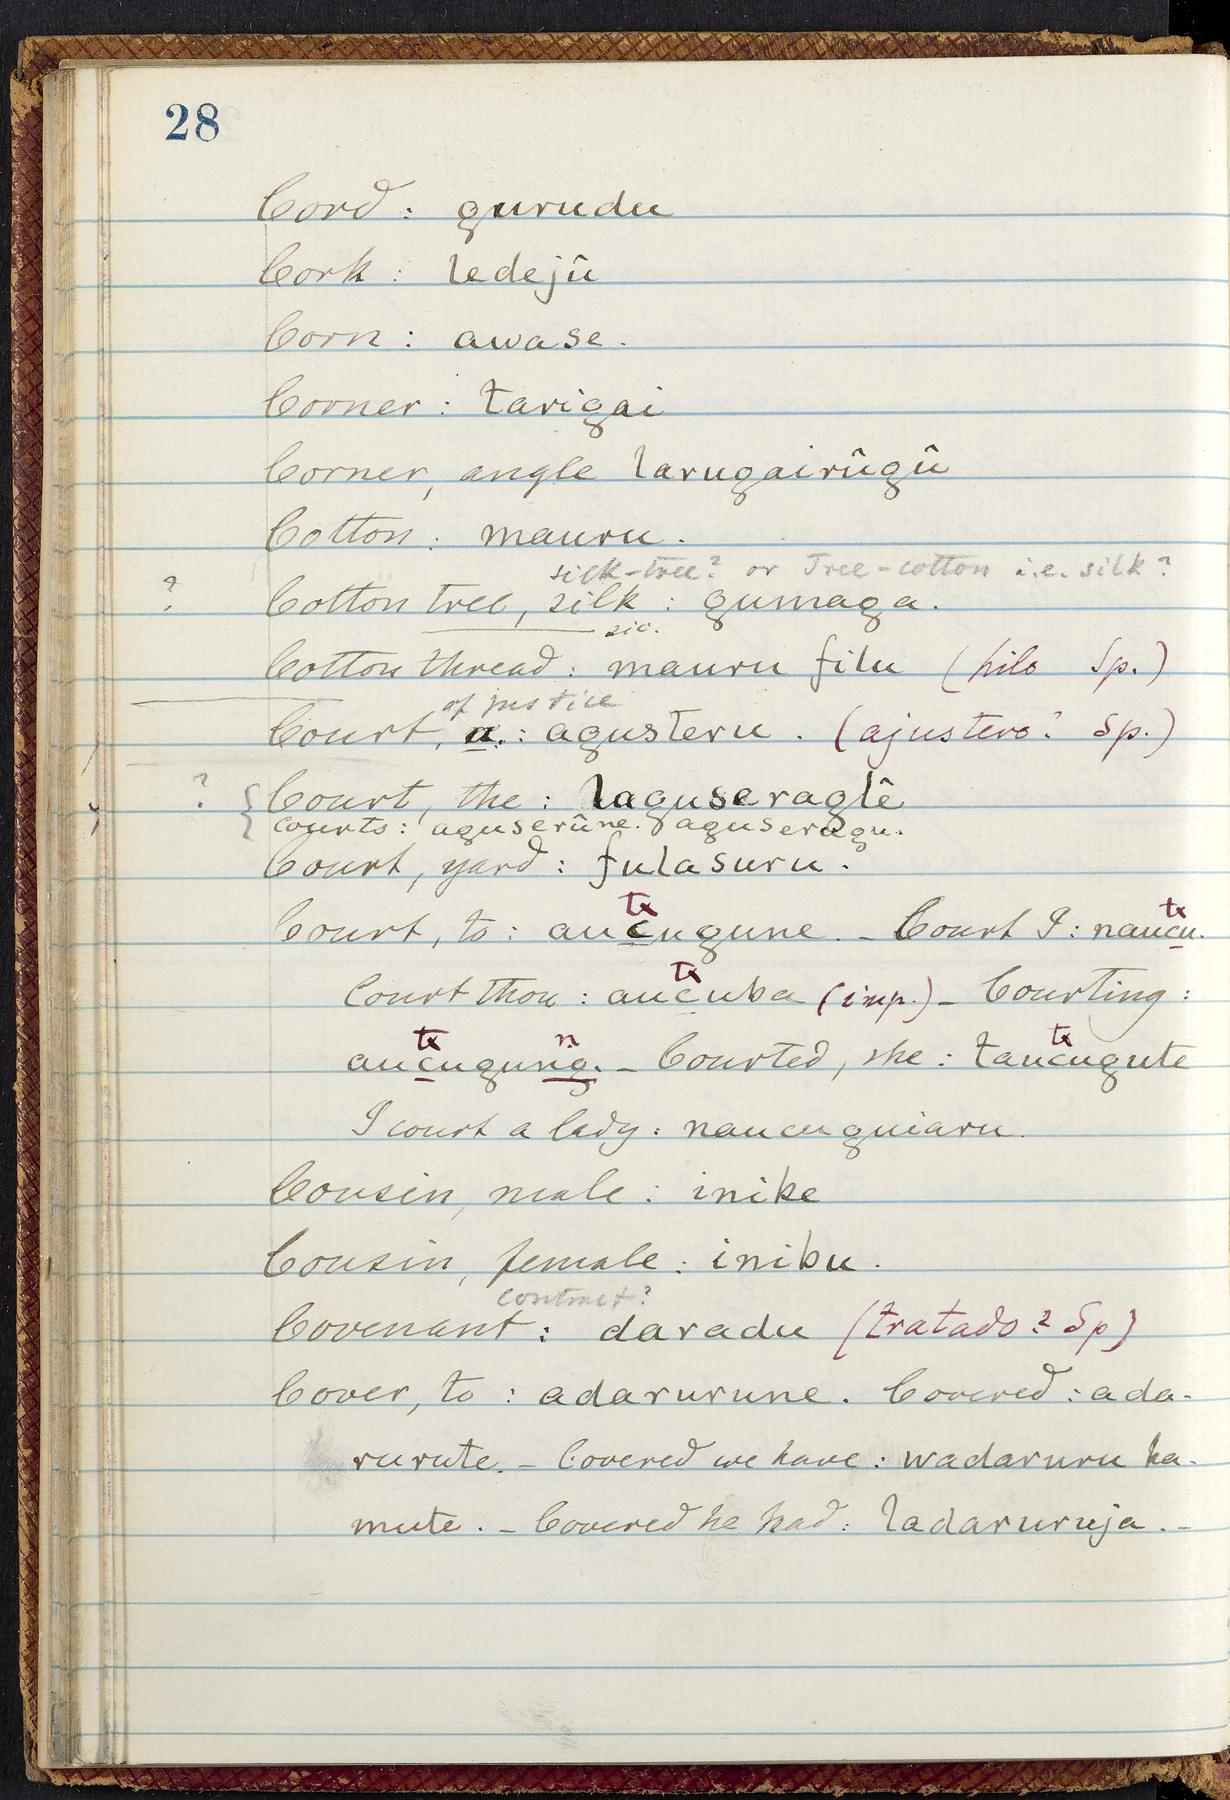 28
Cord : gurudu
Cork : ledejû
Corn : awase.
Corner : tarigai
Corner, angle larugairûgû
Cotton : mauru.
silk-tree? or Tree-cotton i.e. silk?
? Cotton tree, silk : gumaga.
sic.
Cotton thread : mauru filu (hilo Sp.)
of justice
Court, a. : agusteru. (ajustero? Sp.)
? { Court, the : laguseraglê
courts : aguserûne. aguseragu.
Court, yard : fulasuru.
tx tx
Court, to : aucugune. - Court I : naucu.
tx
Court thou : aucuba (imp.) - Courting :
tx n tx
aucugung. - Courted, she : taucugute
I court a lady : naucuguiaru.
Cousin, male : inike
Cousin, female : inibu.
contract?
Covenant : daradu (tratado? Sp)
Cover, to : adarurune. Covered : ada-
rurute. - Covered we have : wadaruru ha-
mute. - Covered he had : ladaruruja. -